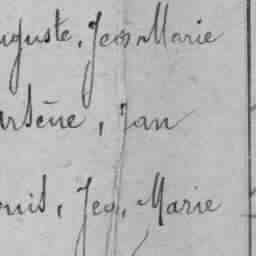 uguste, Jean Marie
rsène, Jan
ouis, Jean, Marie